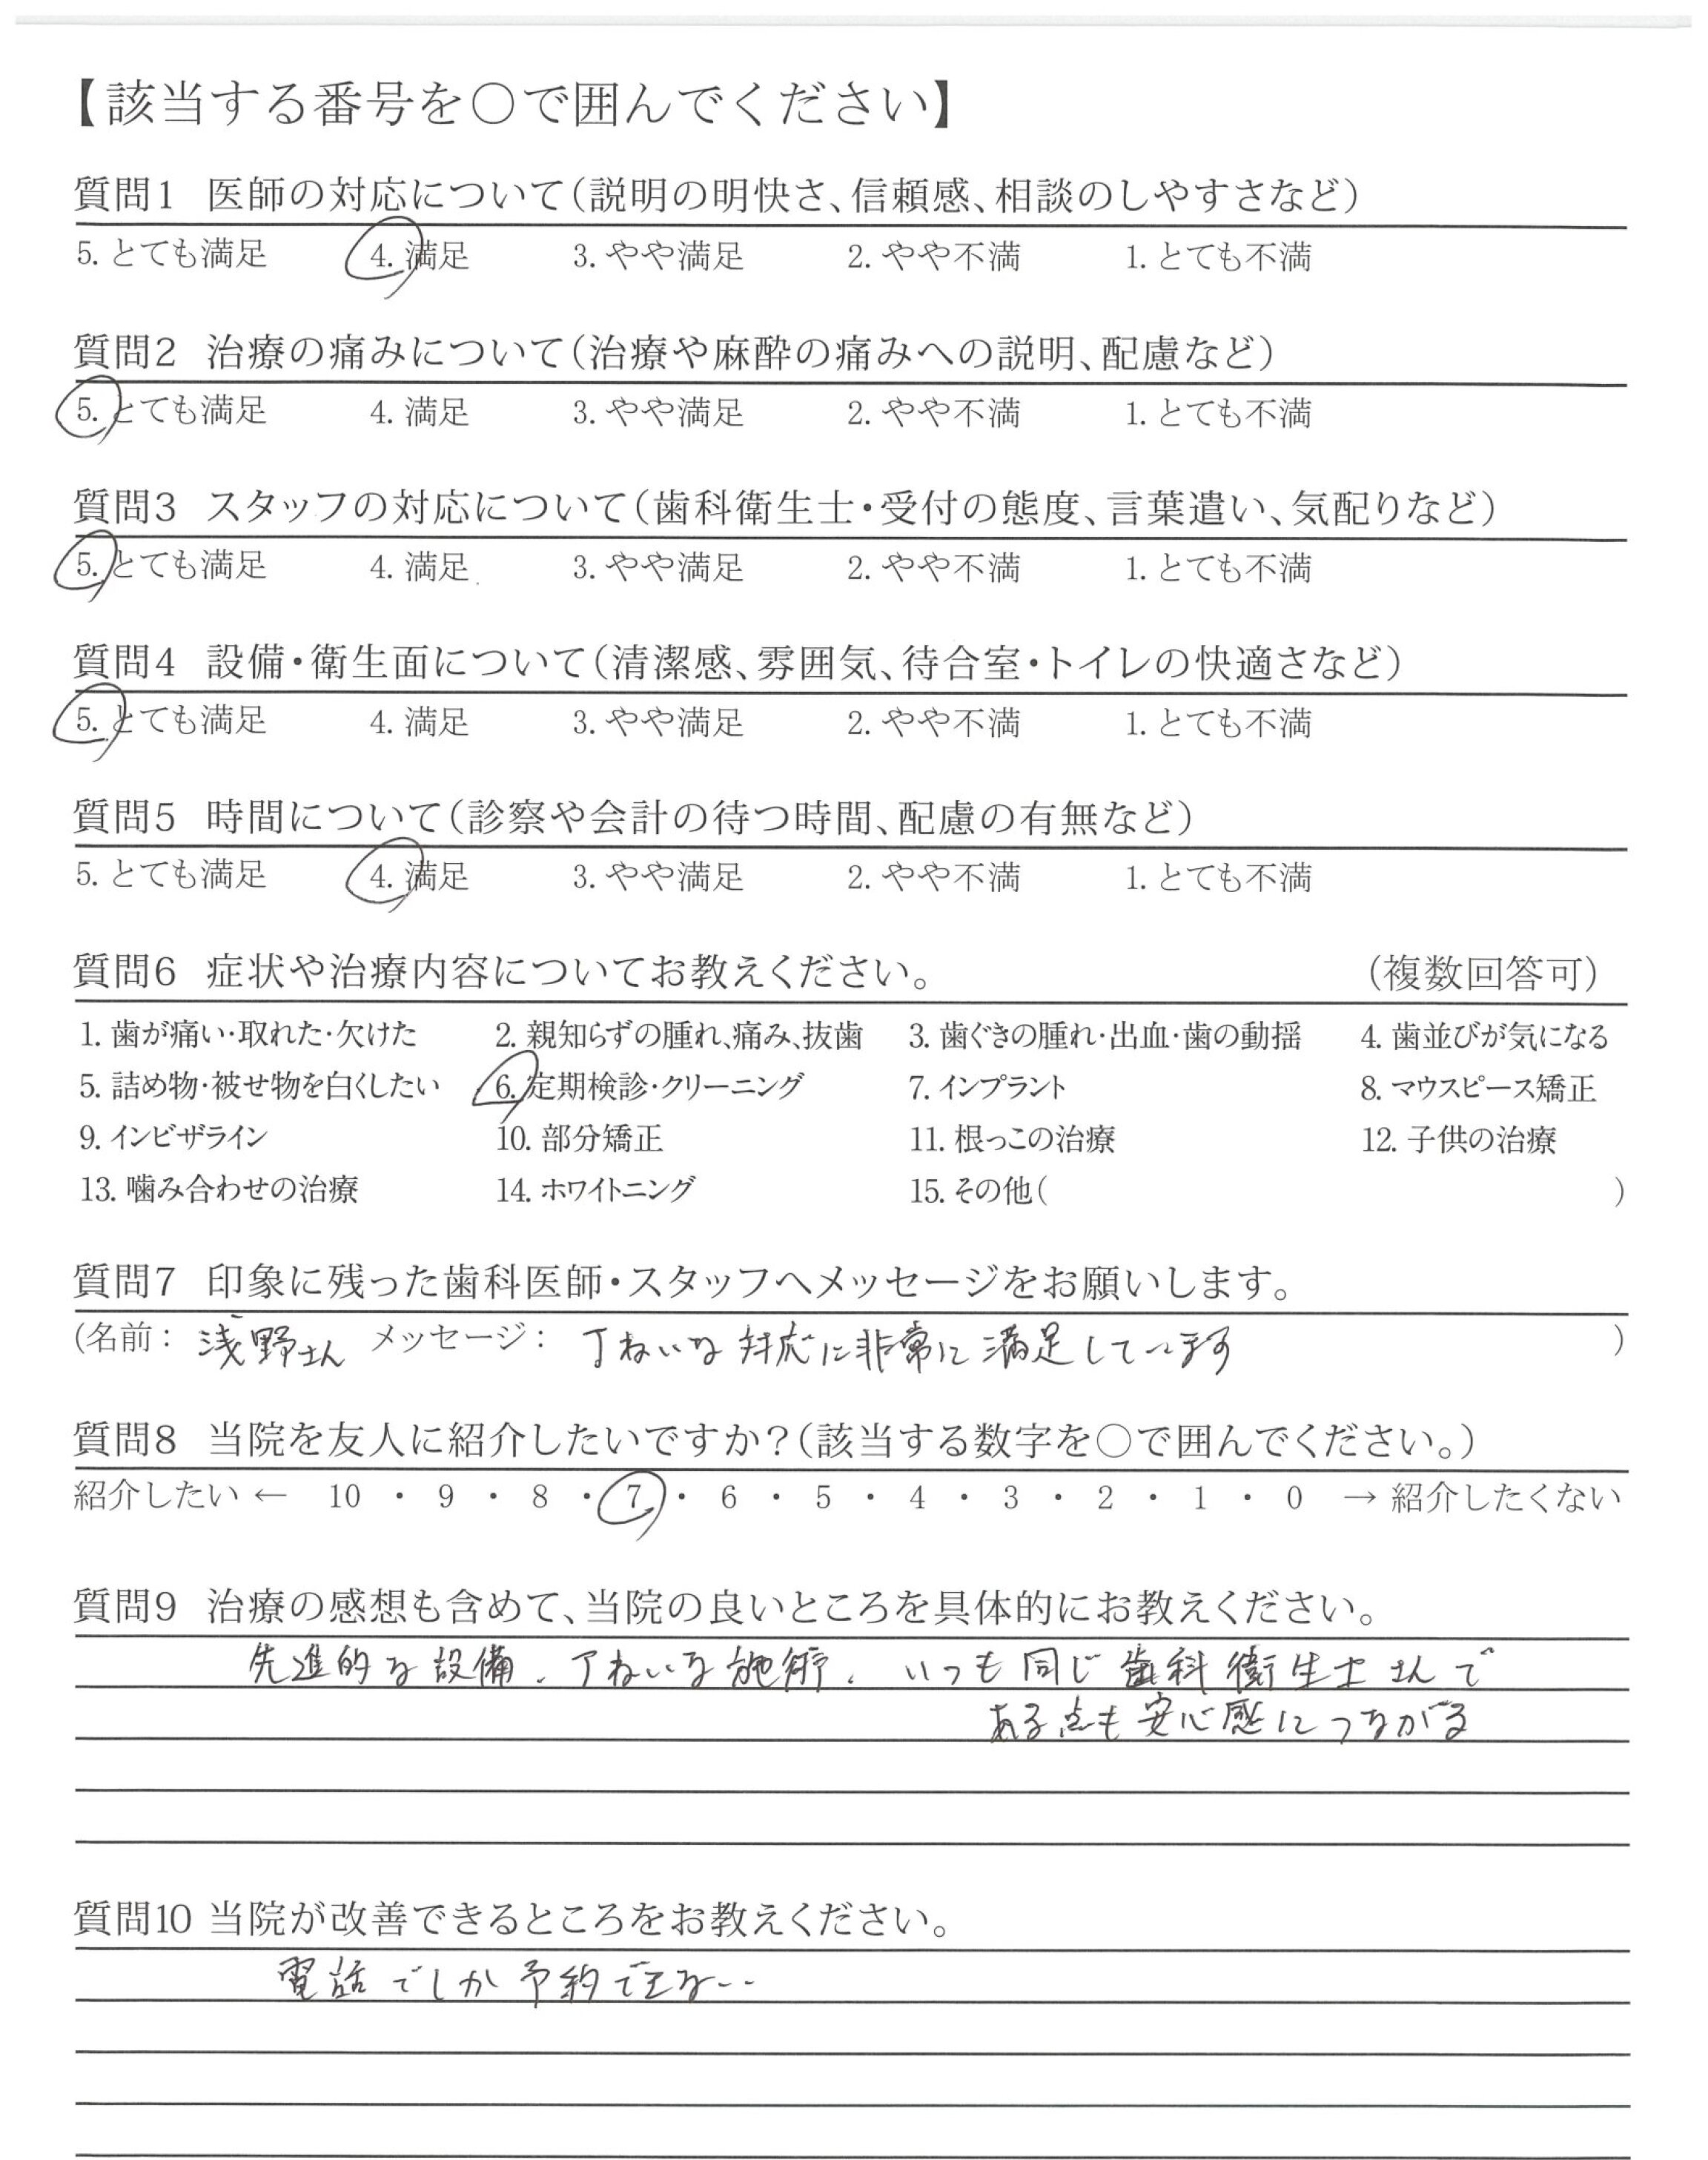 【該当する番号を○で囲んでください】
質問1 医師の対応について(説明の明快さ、信頼感、相談のしやすさなど)
5. とても満足 4. 満足 3. やや満足 2. やや不満 1. とても不満
質問2 治療の痛みについて(治療や麻酔の痛みへの説明、配慮など)
5. とても満足 4. 満足 3. やや満足 2. やや不満 1. とても不満
質問3 スタッフの対応について(歯科衛生士・受付の態度、言葉遣い、気配りなど)
5. とても満足 4. 満足 3. やや満足 2. やや不満 1. とても不満
質問4 設備・衛生面について(清潔感、雰囲気、待合室・トイレの快適さなど)
5. とても満足 4. 満足 3. やや満足 2. やや不満 1. とても不満
質問5 時間について(診察や会計の待つ時間、配慮の有無など)
5. とても満足 4. 満足 3. やや満足 2. やや不満 1. とても不満
質問6 症状や治療内容についてお教えください。 (複数回答可)
1. 歯が痛い・取れた・欠けた 2. 親知らずの腫れ、痛み、抜歯 3. 歯ぐきの腫れ・出血・歯の動揺 4. 歯並びが気になる
5. 詰め物・被せ物を白くしたい 6. 定期検診・クリーニング 7. インプラント 8. マウスピース矯正
9. インビザライン 10. 部分矯正 11. 根っこの治療 12. 子供の治療
13. 噛み合わせの治療 14. ホワイトニング 15. その他( )
質問7 印象に残った歯科医師・スタッフへメッセージをお願いします。
(名前: 浅野さん メッセージ: 丁ねいな対応に非常に満足しています )
質問8 当院を友人に紹介したいですか?(該当する数字を○で囲んでください。)
紹介したい ← 10 ・ 9 ・ 8 ・ 7 ・ 6 ・ 5 ・ 4 ・ 3 ・ 2 ・ 1 ・ 0 → 紹介したくない
質問9 治療の感想も含めて、当院の良いところを具体的にお教えください。
先進的な設備、丁ねいな施術、いつも同じ歯科衛生士さんで
ある点も安心感につながる
質問10 当院が改善できるところをお教えください。
電話でしか予約できない